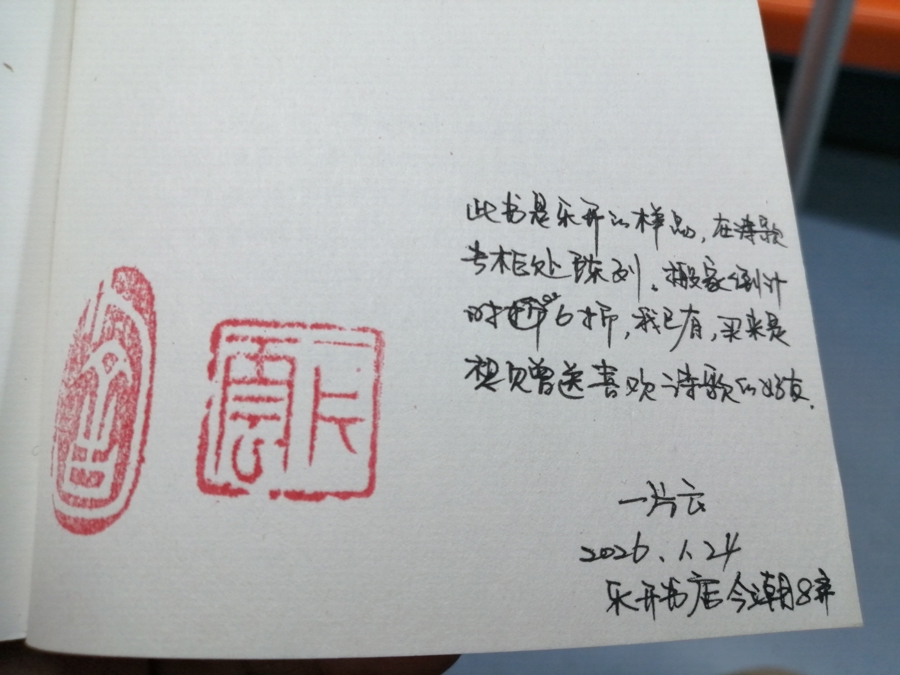 此书是乐开的样品，在诗歌
专柜处陈列。搬家倒计
时 6折，我已有，买来是
想赠送喜欢诗歌的好友.
一片云
2026.1.24
乐开书店今潮8弄
片雲